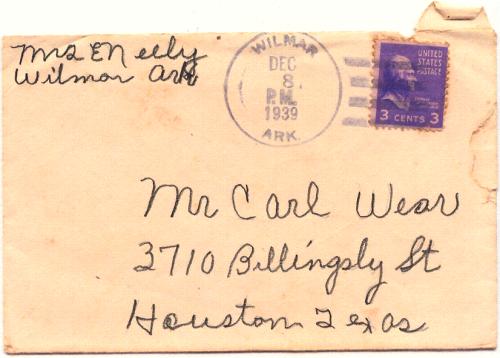 Mrs E Neely
Wilmar Ark
WILMAR
DEC
8
P.M.
1939
ARK.
UNITED
STATES
POSTAGE
3 CENTS 3
Mr Carl Wear
3710 Billingsly St
Houston Texas